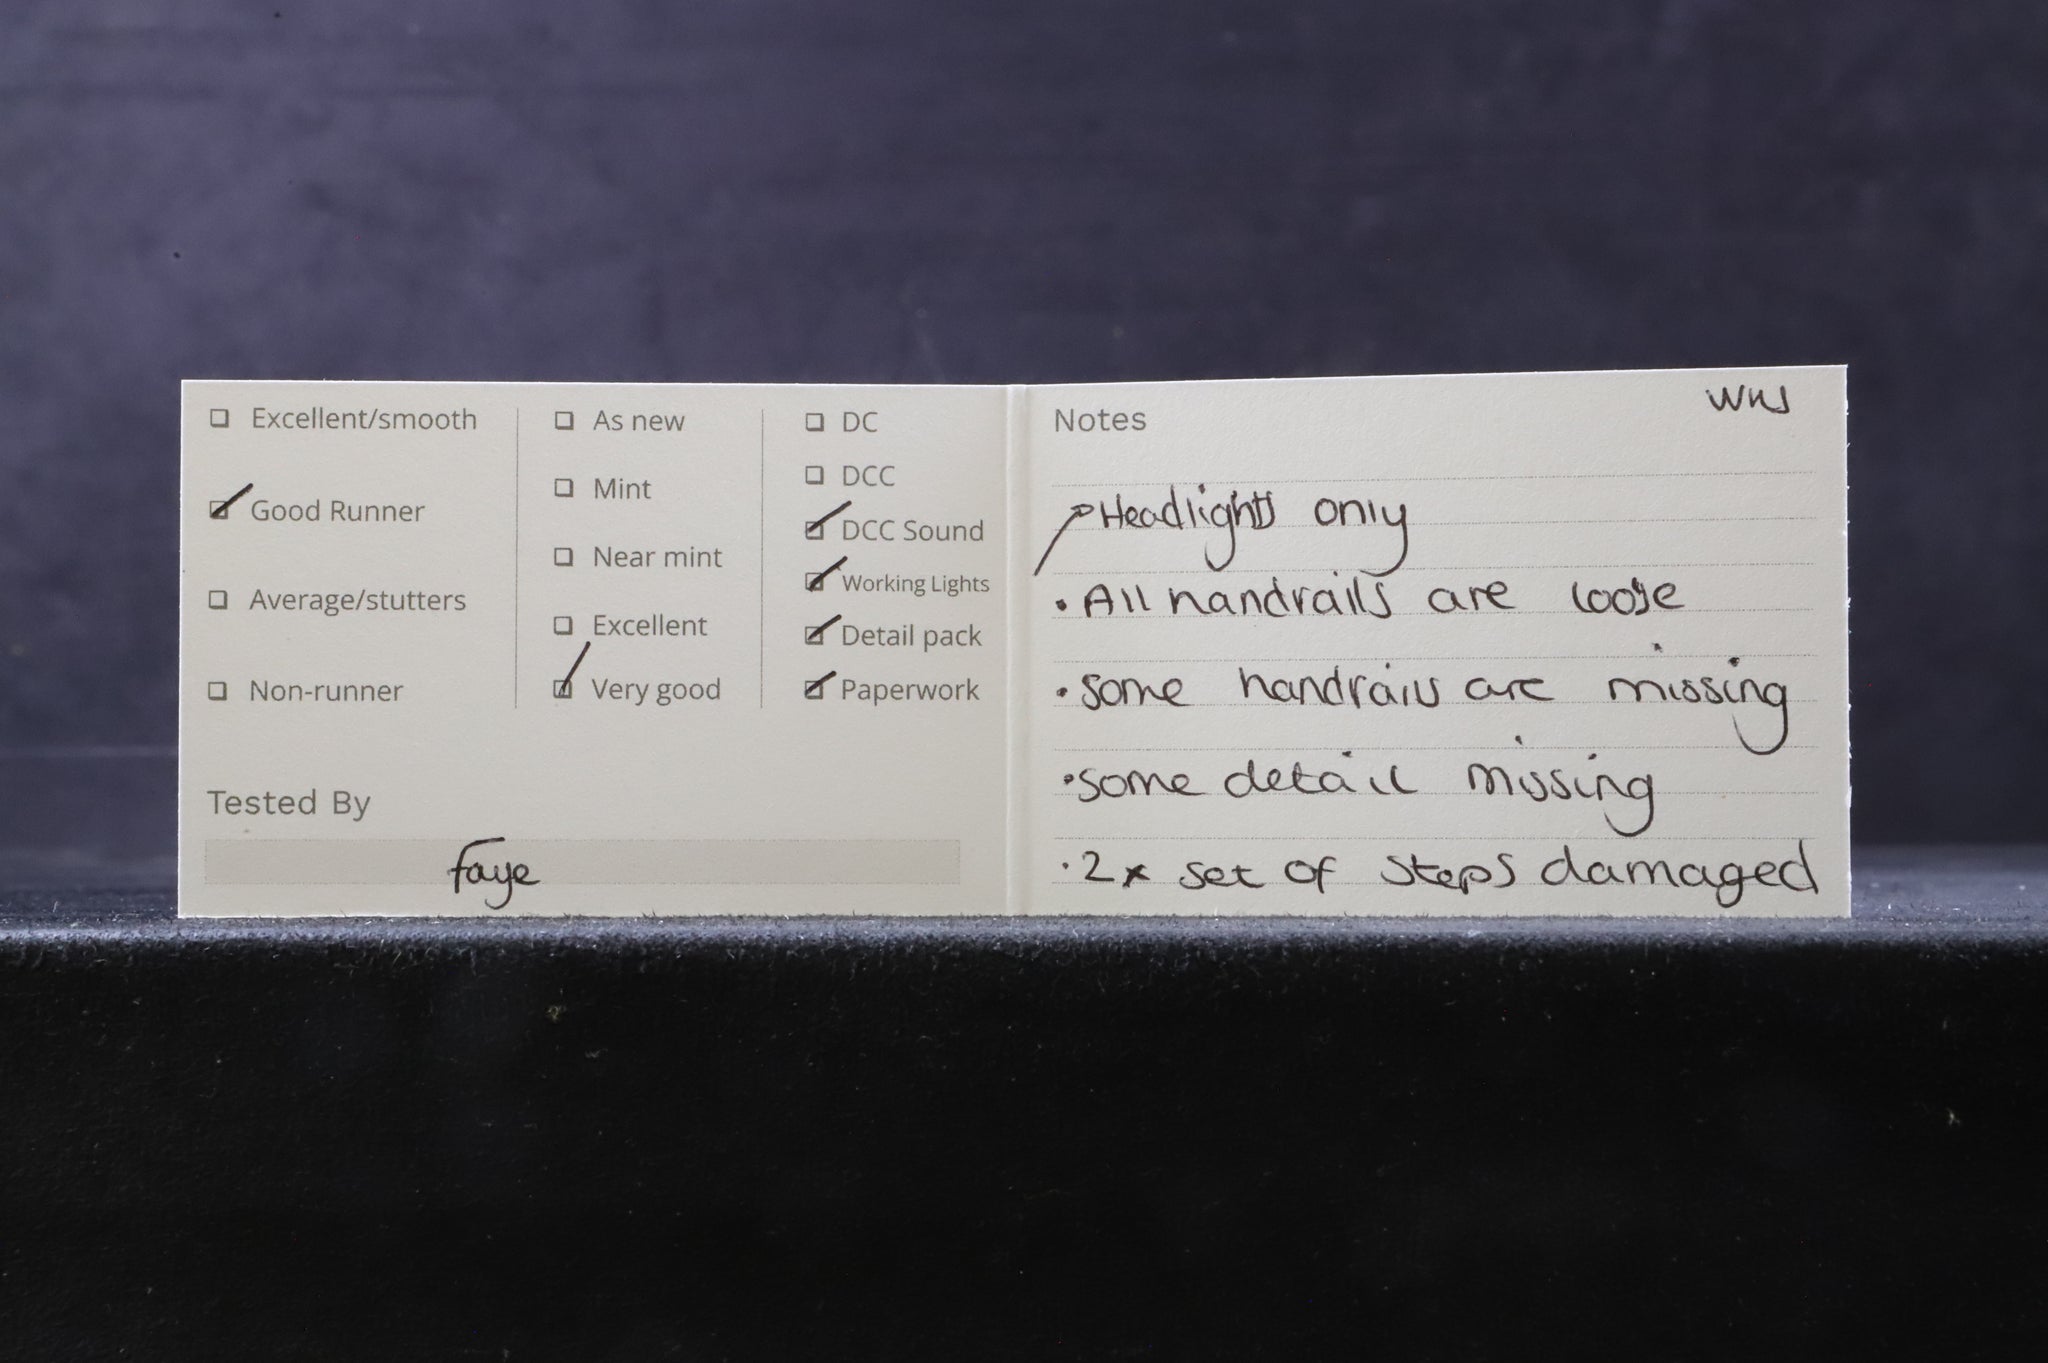 Excellent/smooth
Good Runner
Average/stutters
Non-runner
As new
Mint
Near mint
Excellent
Very good
DC
DCC
DCC Sound
Working Lights
Detail pack
Paperwork
Tested By
Faye
Notes
Headlights only
• All handrails are loose
• some handrails are missing
• some detail missing
• 2x set of steps damaged